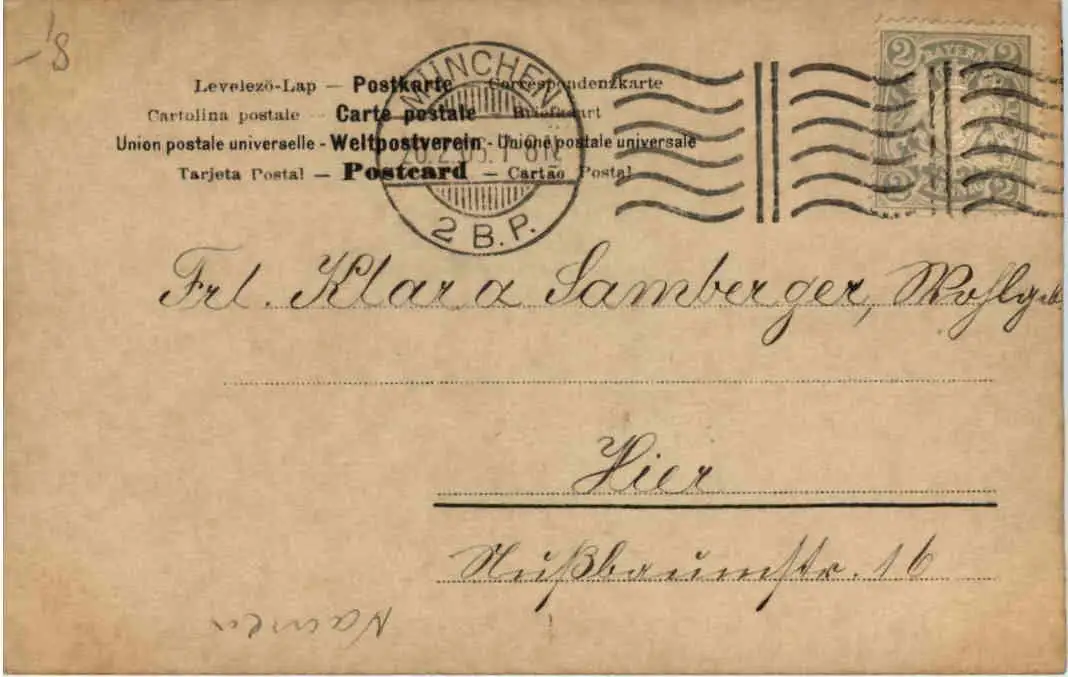 -/8
Levelező-Lap — Postkarte — Correspondenzkarte
Cartolina postale — Carte postale — Briefkaart
Union postale universelle - Weltpostverein - Unione postale universale
Tarjeta Postal — Postcard — Cartão Postal
MÜNCHEN
2 B.P.
2 BAYERN 2
2 2
Frl. Klara Samberger, Wohlgeb.
Hier
Nußbaumstr. 16
Namen